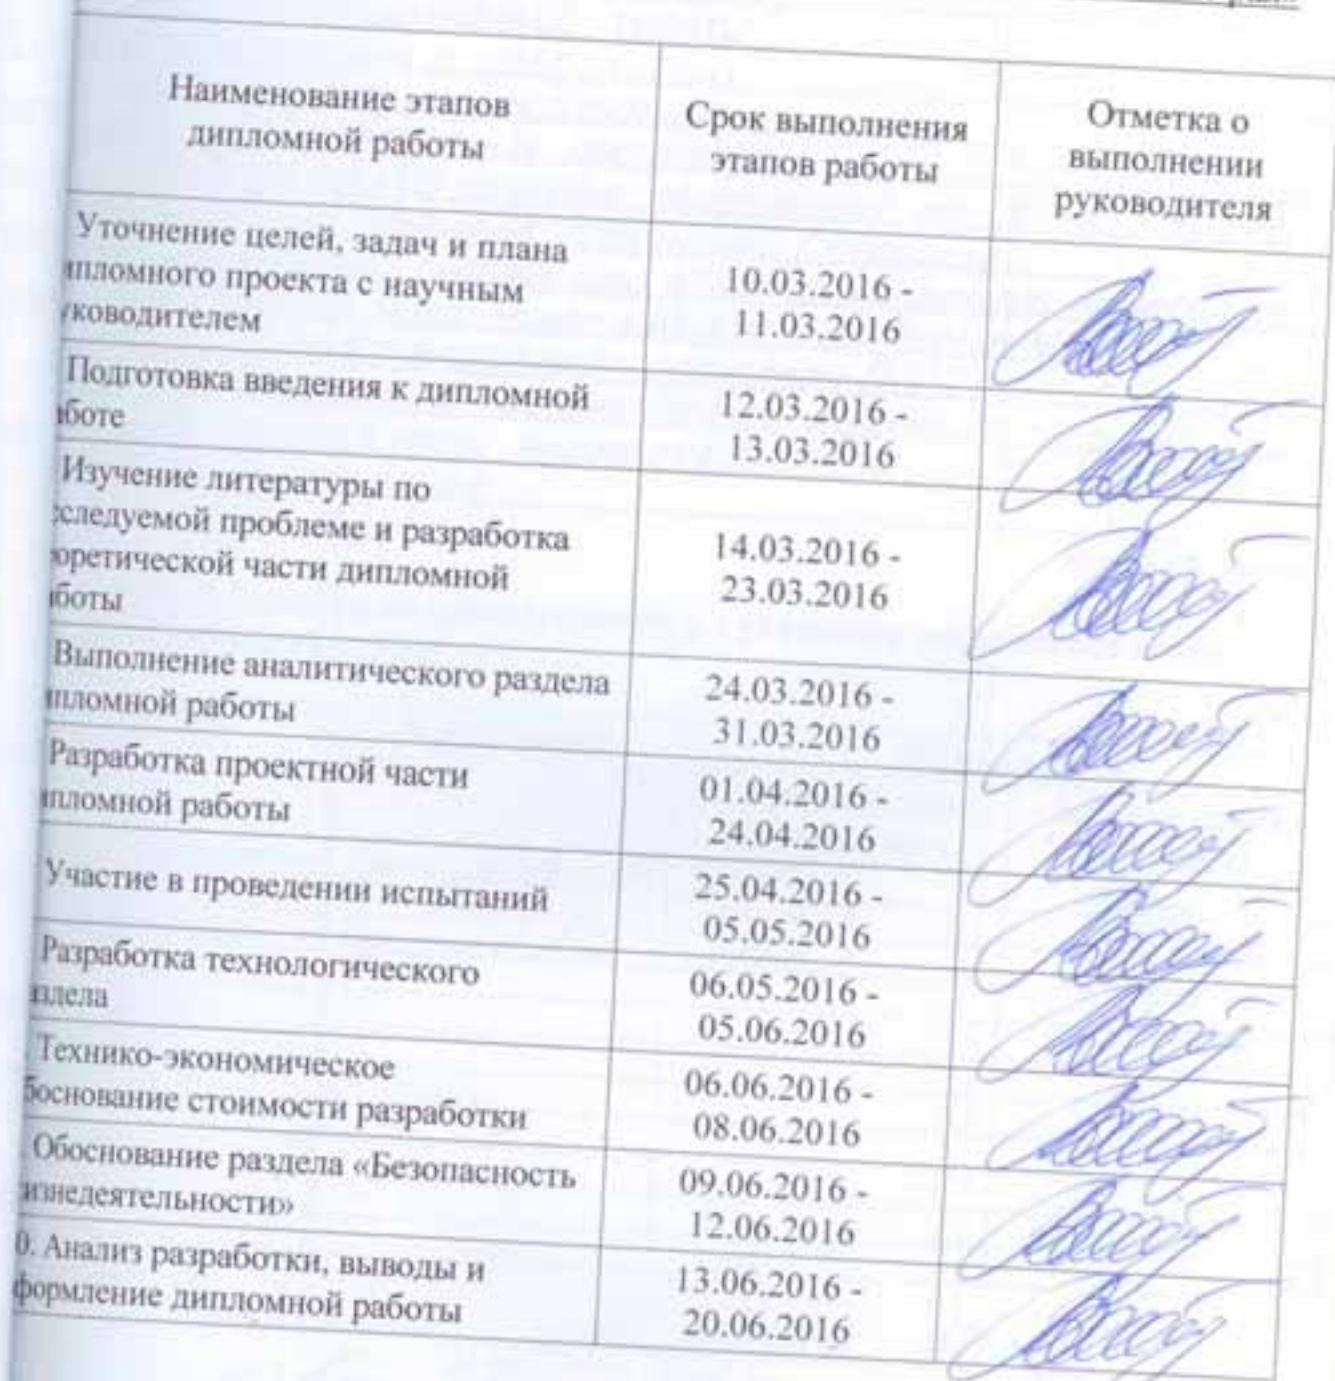 Наименование этапов
дипломной работы
Срок выполнения
этапов работы
Отметка о
выполнении
руководителя
Уточнение целей, задач и плана
ипломного проекта с научным
уководителем
10.03.2016 -
11.03.2016
Подготовка введения к дипломной
аботе
12.03.2016 -
13.03.2016
Изучение литературы по
сследуемой проблеме и разработка
оретической части дипломной
аботы
14.03.2016 -
23.03.2016
Выполнение аналитического раздела
ипломной работы
24.03.2016 -
31.03.2016
Разработка проектной части
ипломной работы
01.04.2016 -
24.04.2016
Участие в проведении испытаний
25.04.2016 -
05.05.2016
Разработка технологического
аздела
06.05.2016 -
05.06.2016
Технико-экономическое
боснование стоимости разработки
06.06.2016 -
08.06.2016
Обоснование раздела «Безопасность
изнедеятельности»
09.06.2016 -
12.06.2016
0. Анализ разработки, выводы и
формление дипломной работы
13.06.2016 -
20.06.2016